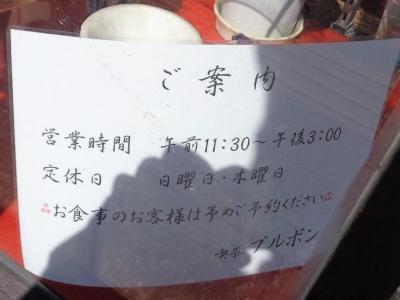 ご案内
営業時間 午前11:30～午後3:00
定休日 日曜日・木曜日
お食事のお客様は予めご予約ください
喫茶 ブルボン